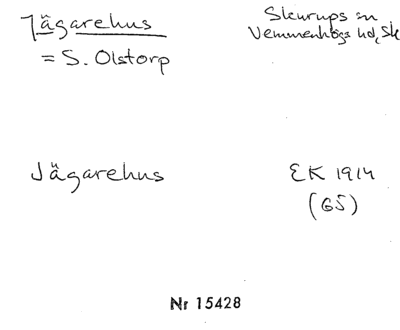 Jägarehus
= S. Olstorp
Skurups sn
Vemmenhögs hd, Sk
Jägarehus
EK 1914
(GJ)
Nr 15428